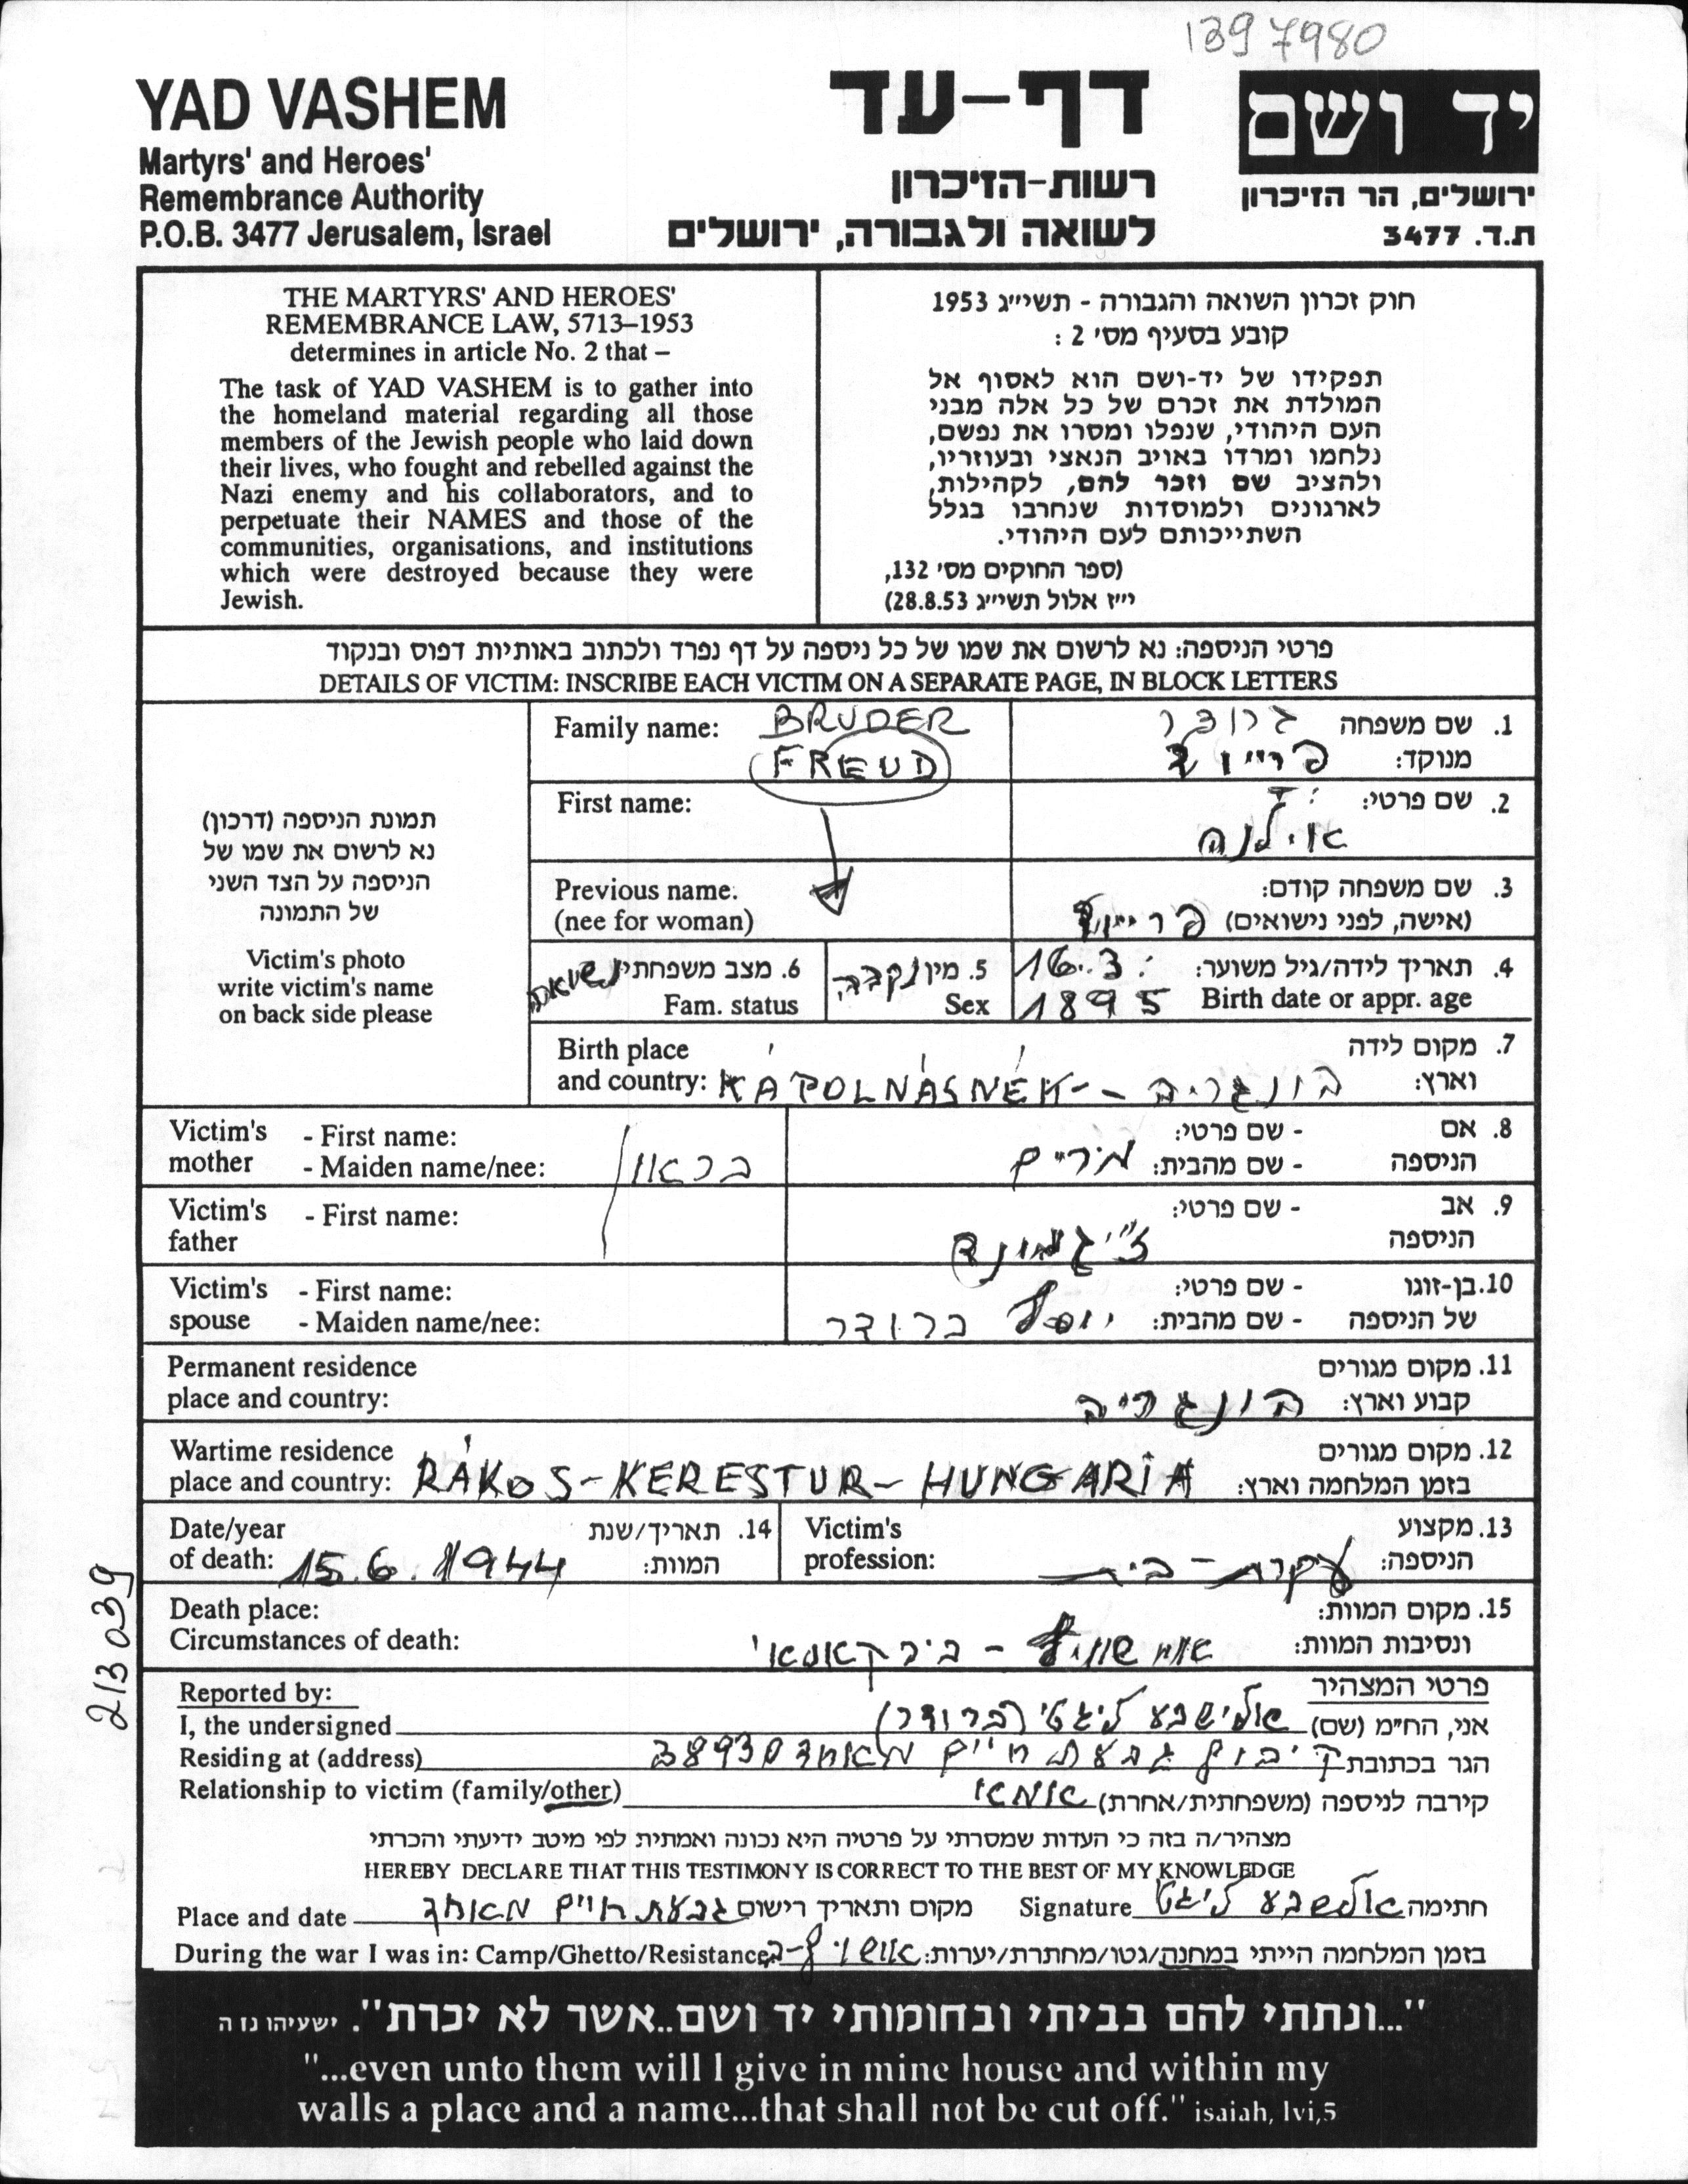 1397980
YAD VASHEM
Martyrs' and Heroes'
Remembrance Authority
P.O.B. 3477 Jerusalem, Israel
דף-עד
רשות-הזיכרון
לשואה ולגבורה, ירושלים
יד ושם
ירושלים, הר הזיכרון
ת.ד. 3477
THE MARTYRS' AND HEROES'
REMEMBRANCE LAW, 5713–1953
determines in article No. 2 that –
The task of YAD VASHEM is to gather into
the homeland material regarding all those
members of the Jewish people who laid down
their lives, who fought and rebelled against the
Nazi enemy and his collaborators, and to
perpetuate their NAMES and those of the
communities, organisations, and institutions
which were destroyed because they were
Jewish.
חוק זכרון השואה והגבורה - תשי״ג 1953
קובע בסעיף מס' 2 :
תפקידו של יד-ושם הוא לאסוף אל
המולדת את זכרם של כל אלה מבני
העם היהודי, שנפלו ומסרו את נפשם,
נלחמו ומרדו באויב הנאצי ובעוזריו,
ולהציב שם וזכר להם, לקהילות,
לארגונים ולמוסדות שנחרבו בגלל
השתייכותם לעם היהודי.
(ספר החוקים מס' 132,
י״ז אלול תשי״ג 28.8.53)
פרטי הניספה: נא לרשום את שמו של כל ניספה על דף נפרד ולכתוב באותיות דפוס ובנקוד
DETAILS OF VICTIM: INSCRIBE EACH VICTIM ON A SEPARATE PAGE, IN BLOCK LETTERS
תמונת הניספה (דרכון)
נא לרשום את שמו של
הניספה על הצד השני
של התמונה
Victim's photo
write victim's name
on back side please
Family name: BRUDER
FREUD
1. שם משפחה ברודר
מנוקד: פריוד
First name:
2. שם פרטי:
אילנה
Previous name.
(nee for woman)
3. שם משפחה קודם:
(אישה, לפני נישואים) פריוד
4. תאריך לידה/גיל משוער: 16.3.
Birth date or appr. age 1895
5. מין נקבה
Sex
6. מצב משפחתי נשואה
Fam. status
Birth place
and country: KÁPOLNÁSNÉK -
7. מקום לידה
וארץ: הונגריה
Victim's - First name:
mother - Maiden name/nee: בראון
8. אם - שם פרטי:
הניספה - שם מהבית: מרים
Victim's - First name:
father
9. אב - שם פרטי:
הניספה
ז'יגמונד
Victim's - First name:
spouse - Maiden name/nee:
10. בן-זוגו - שם פרטי:
של הניספה - שם מהבית: יוסף ברודר
Permanent residence
place and country:
11. מקום מגורים
קבוע וארץ: הונגריה
Wartime residence
place and country: RÁKOS-KERESTUR-HUNGARIA
12. מקום מגורים
בזמן המלחמה וארץ:
Date/year
of death: 15.6.1944
14. תאריך/שנת
המוות:
Victim's
profession:
13. מקצוע
הניספה: עקרת-בית
Death place:
Circumstances of death:
15. מקום המוות:
ונסיבות המוות: אושוויץ -
213039
Reported by:
פרטי המצהיר
I, the undersigned
אני, הח״מ (שם) אלישבע ליגטי (ברודר)
Residing at (address)
הגר בכתובת קיבוץ גבעת חיים מאוחד 38930
Relationship to victim (family/other)
קירבה לניספה (משפחתית/אחרת) אמא
מצהיר/ה בזה כי העדות שמסרתי על פרטיה היא נכונה ואמתית לפי מיטב ידיעתי והכרתי
HEREBY DECLARE THAT THIS TESTIMONY IS CORRECT TO THE BEST OF MY KNOWLEDGE
Place and date
מקום ותאריך רישום גבעת חיים מאוחד
Signature
חתימה אלישבע ליגטי
During the war I was in: Camp/Ghetto/Resistance
בזמן המלחמה הייתי במחנה/גטו/מחתרת/יערות:
"...ונתתי להם בביתי ובחומותי יד ושם..אשר לא יכרת". ישעיהו נו ה
"...even unto them will I give in mine house and within my
walls a place and a name...that shall not be cut off." isaiah, lvi,5